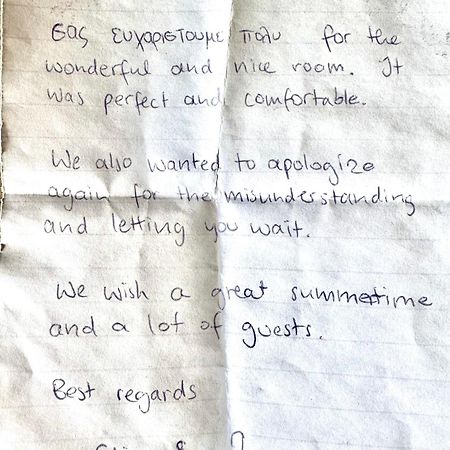 σας ευχαριστουμε πολυ for the
wonderful and nice room. It
was perfect and comfortable.
We also wanted to apologize
again for the misunderstanding
and letting you wait.
We wish a great summertime
and a lot of guests.
Best regards